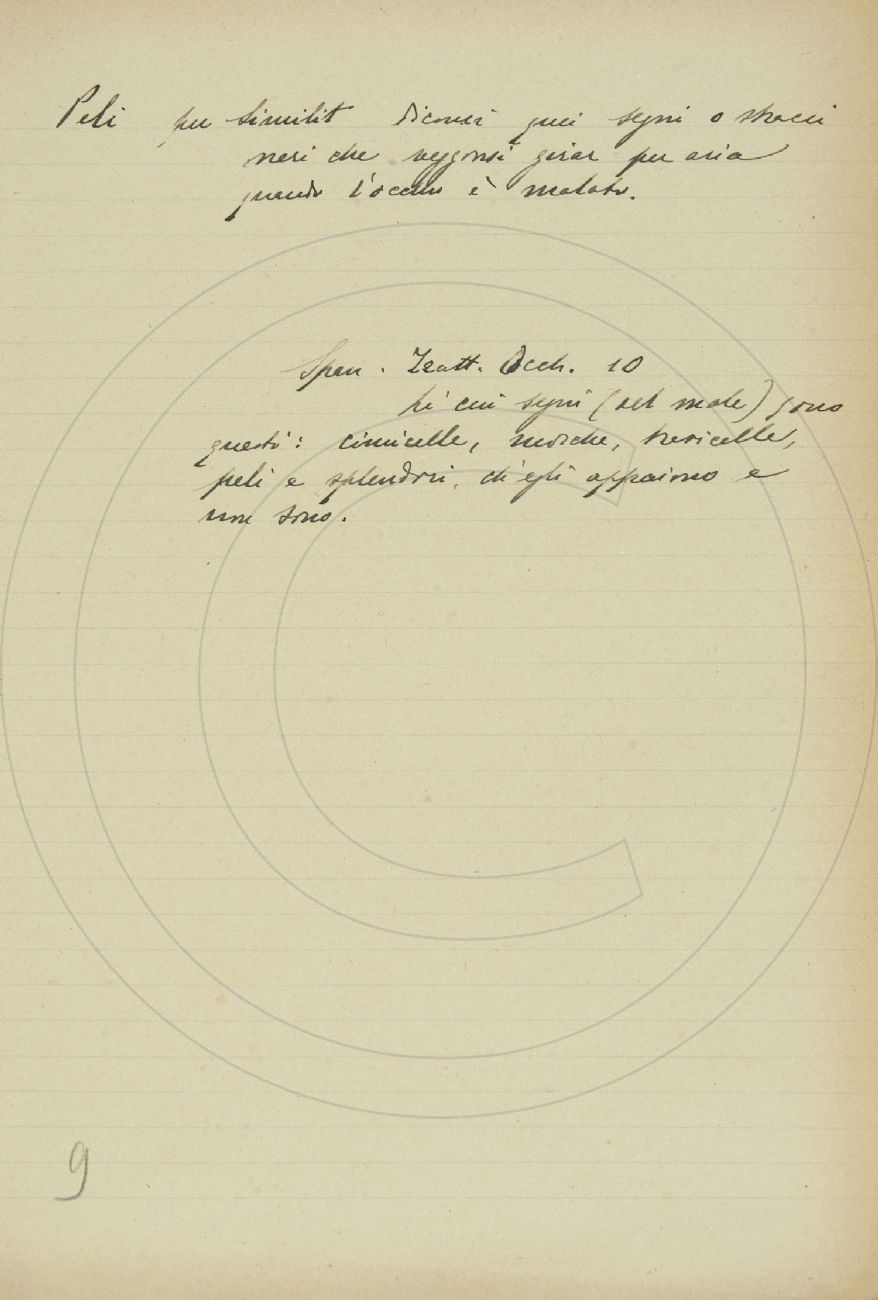 Peli per similit diconsi quei segni o stracci
neri che veggonsi girar per aria
quando l'occhio è malato.
Span. Tratt. Occh. 10
li cui segni (del male) sono
questi: cimicelle, mosche,
peli e splendori, ch'egli appaiono e
non sono.
9